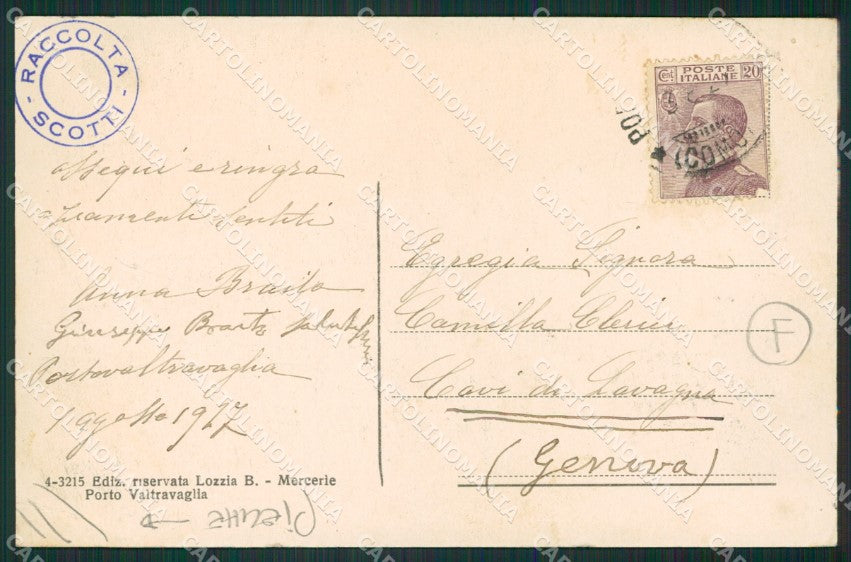 RACCOLTA
SCOTTI
POSTE
ITALIANE
Cent 20
PO
(COMO)
Ossequi e ringra
ziamenti sentiti
Anna
Giuseppe
Portovaltravaglia
agosto 1927
Egregia Signora
Camilla Clerici
Cavi di Lavagna
(Genova)
F
4-3215 Ediz. riservata Lozzia B. - Mercerie
Porto Valtravaglia
CARTOLINOMANIA